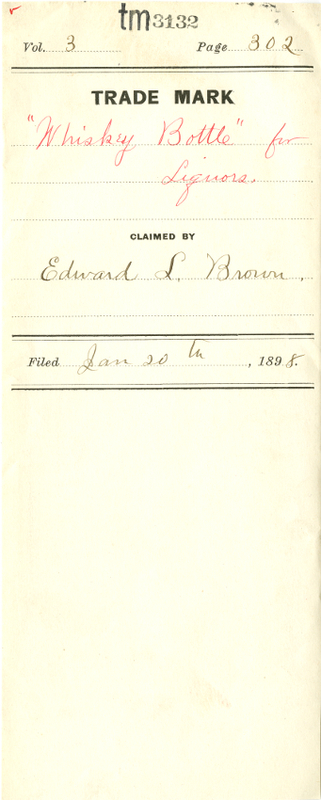 tm3132
Vol. 3 Page 302
TRADE MARK
"Whiskey Bottle" for
Liquors.
CLAIMED BY
Edward L. Brown.
Filed Jan 20th, 1898.